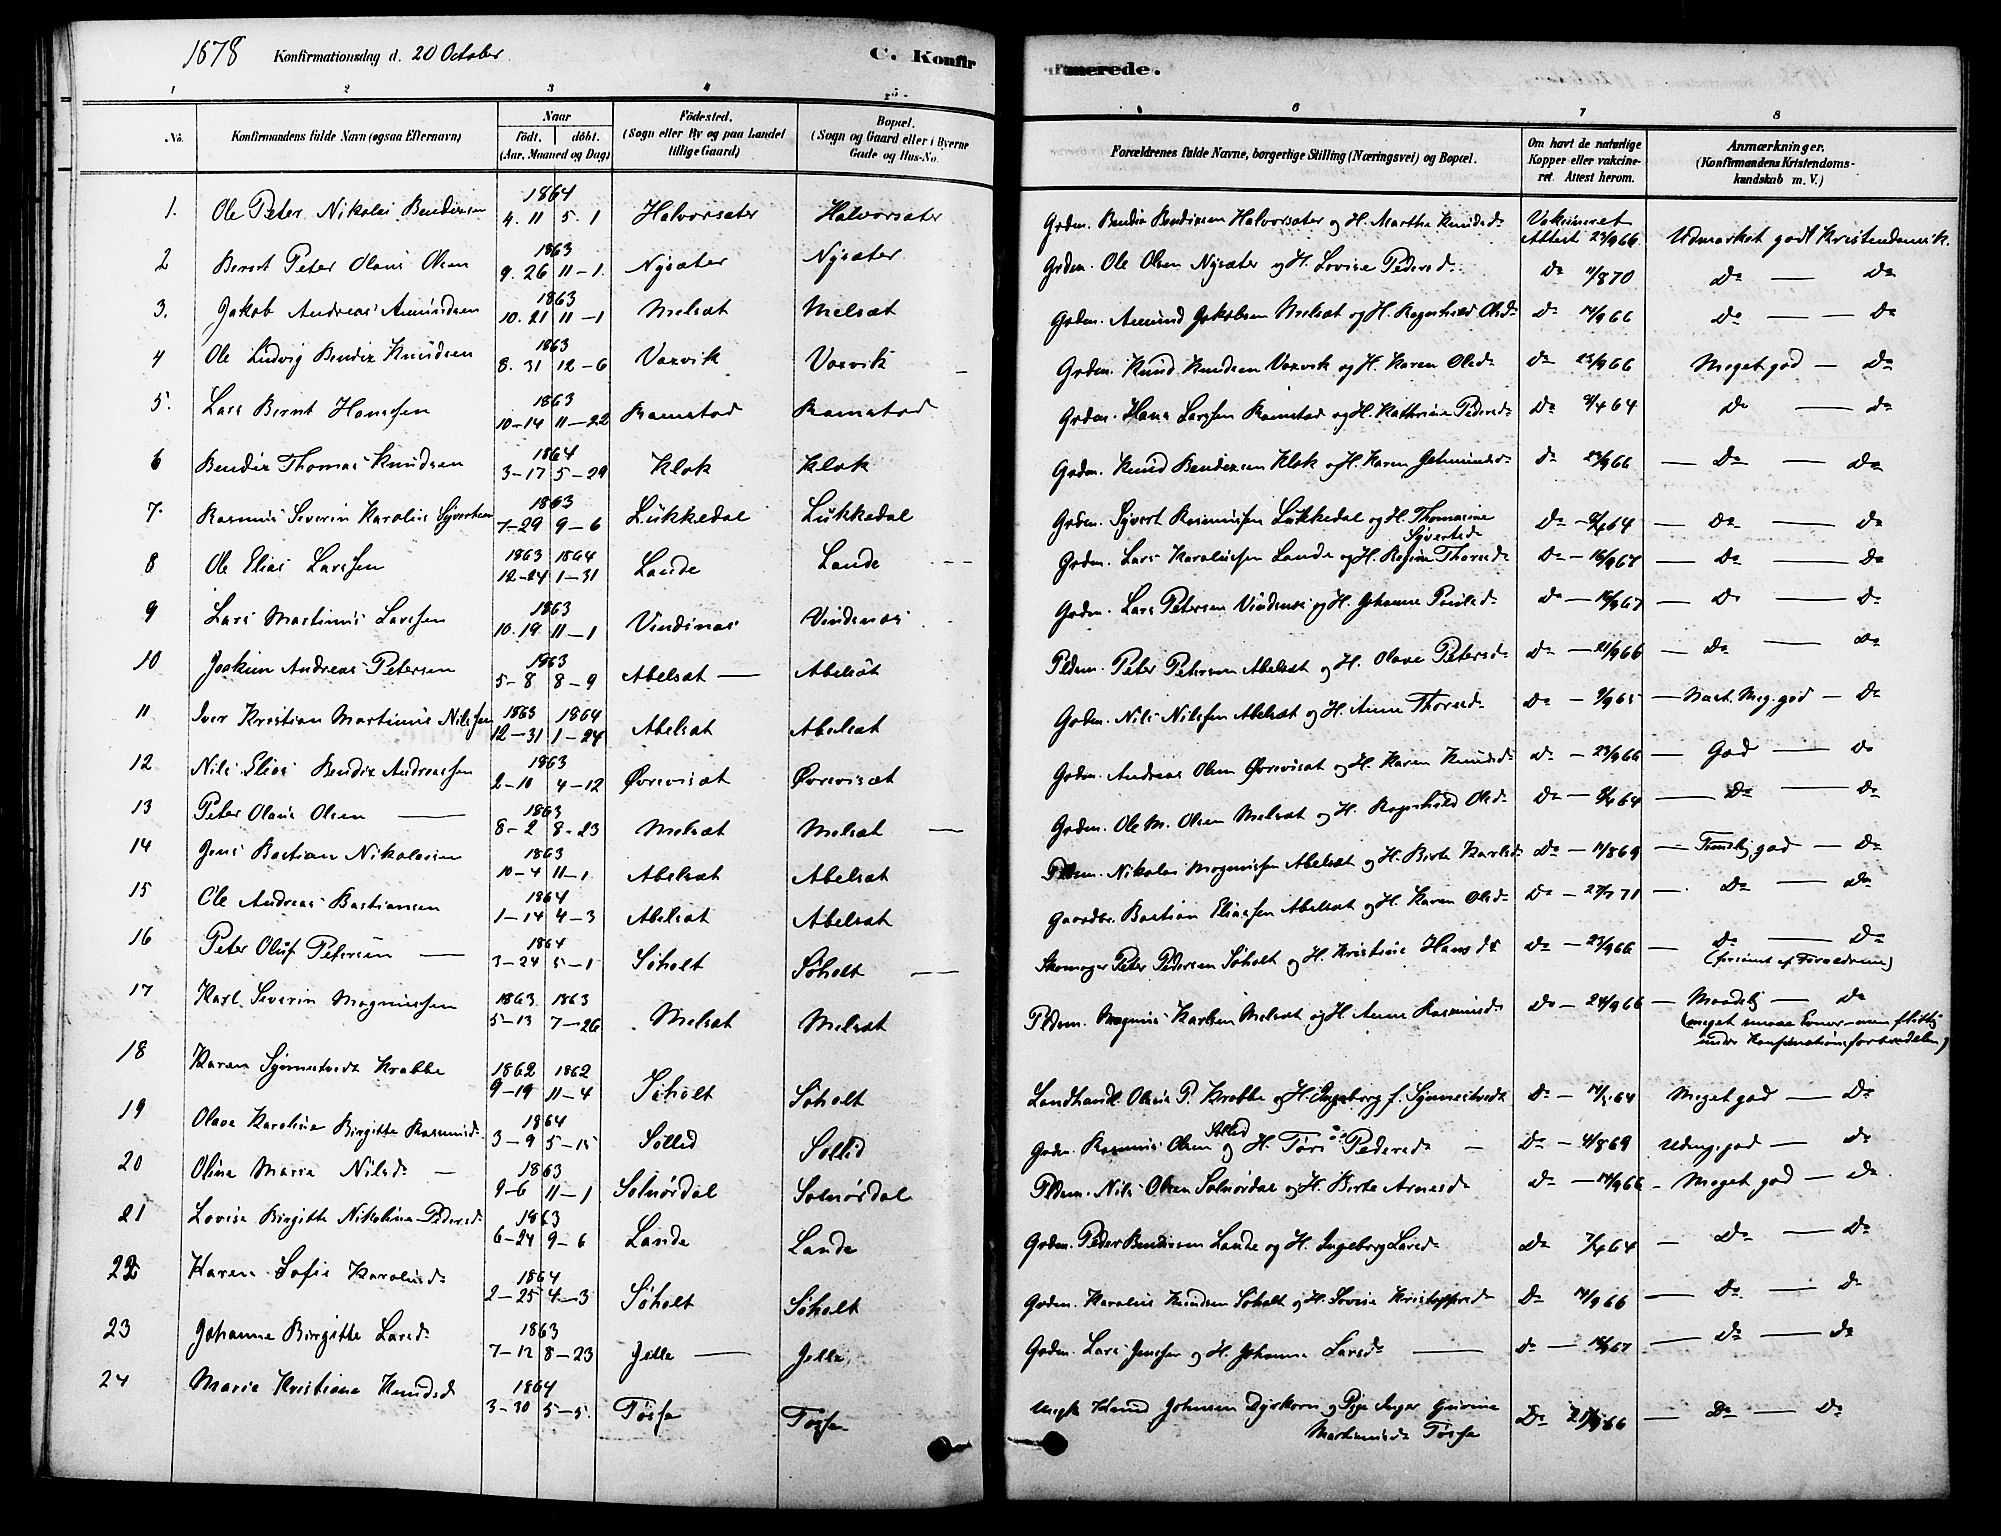 1878 Konfirmationsdag d. 20 October. C. Konfirmerede.
1 2 3 4 5. 6 7 8
No. Konfirmandens fulde Navn (ogsaa Efternavn) Naar födt. döbt. (Aar, Maaned og Dag) Födested. (Sogn eller By og paa Landet tillige Gaard) Bopæl. (Sogn og Gaard eller i Byerne Gade og Hus-No. Forældrenes fulde Navne, borgerlige Stilling (Næringsvei) og Bopæl. Om havt de naturlige Kopper eller vakcineret. Attest herom. Anmærkninger. (Konfirmandens Kristendomskundskab m. V.)
1. Ole Peter Nikolai Bendixsen 1864 4. 11 5. 1 Halvorsæter Halvorsæter Grdm. Bendix Bendixsen Halvorsæter og H. Marthe Knudsd. Vakcineret Attest 23/9 66 Udmærket godt Kristendomsk.
2 Bernt Peter Olaus Olsen 1863 9. 26 11-1. Nysæter Nysæter Grdm. Ole Olsen Nysæter og H. Lovise Pedersd. Do 11/8 70 Do — Do
3. Jakob Andreas Amundsen 1863 10. 21 11-1 Melsæt Melsæt Grdm. Amund Jakobsen Melsæt og H. Ragnhild Olsd. Do 14/9 66 Do — Do
4 Ole Ludvig Bendix Knudsen 1863 8. 31 12-6 Vaxvik Vaxvik Grdm. Knud Knudsen Vaxvik og H. Karen Olsd. Do 23/9 66 Meget god — Do
5. Lars Bernt Hanssen 1863 10-14 11-22 Ramstad Ramstad Grdm. Hans Larssen Ramstad og H. Kathrine Pedersd. Do 8/4 64 Do — Do
6 Bendix Thomas Knudsen 1864 3-17 5-29 Klok Klok Grdm. Knud Bendixsen Klok og H. Karen Jetmundsd. Do 23/9 66 — Do — Do
7. Rasmus Severin Karolus Syvertsen 1863 7-29 9-6 Lukkedal Lukkedal Grdm. Syvert Rasmussen Lukkedal og H. Thomasine Syvertsd. Do - 8/4 64 — Do — Do
8 Ole Elias Larssen 1863 1864 12-24 1-31 Lande Lande Grdm. Lars Karolussen Lande og H. Regine Thorsd. Do - 16/9 67 — Do — Do
9 Lars Martinus Larssen 1863 10. 19 11-1 Vindsnæs Vindsnæs Grdm. Lars Petersen Vindsnæs og H. Johanne Poulsd. Do - 16/9 67 — Do — Do
10 Joakim Andreas Petersen 1863 5-8 8-9 Abelsæt — Abelsæt Pldsm. Peter Petersen Abelsæt og H. Olave Petersd. Do - 21/9 66 — Do — Do
11 Iver Kristian Martinus Nilssen 1863 1864 12-31 1-24 Abelsæt Abelsæt Grdm. Nils Nilssen Abelsæt og H. Anne Thorsd. Do - 9/9 65 — Næst. Meg. god — Do
12 Nils Elias Bendix Andreassen 1863 2-10 4-12 Øvrevisæt Øvrevisæt Grdm. Andreas Olsen Øvrevisæt og H. Karen Knudsd. Do - 23/9 66 — God — Do
13 Peter Olaus Olsen — 1863 8-2 8-23 Melsæt Melsæt — Grdm. Ole M. Olsen Melsæt og H. Ragnhild Olsd. Do - 8/4 64 — Do — Do
14 Jens Bastian Nikolaisen 1863 10-4 11-1. Abelsæt Abelsæt Pldsm. Nikolai Magnussen Abelsæt og H. Birte Karlsd. Do - 11/8 69 — Temlig god — Do
15 Ole Andreas Bastiansen 1864 1-14 4-3 Abelsæt Abelsæt Gaardbr. Bastian Eliassen Abelsæt og H. Karen Olsd. Do - 27/7 71 — Do — Do
16 Peter Oluf Petersen — 1864 3-24 5-1 Söholt Söholt — Skomager Peter Pedersen Söholt og H. Kristine Hansd. Do - 23/9 66 — Do — Do
17 Karl Severin Magnussen 1863 1863 5-13 7-26 Melsæt Melsæt Pldsm. Magnus Karlsen Melsæt og H. Anne Rasmusd. Do - 24/9 66 — Maadelig — Do
(meget smaae Evner - men flittig under Konfirmationsforberedelsen)
18 Karen Synnestvedt Krabbe 1862 1862 9-19 11-4 Söholt Söholt Landhandl. Olaus P. Krabbe og H. Ingeborg f. Synnestvedt Do - 64 Meget god — Do
19 Olave Karoline Birgitte Rasmusd. 1864 3-9 5-15 Sollid Sollid Grdm. Rasmus Olsen Sollid og H. Töri Pedersd. — Do - 4/8 69 Udm. god — Do
20 Oline Marie Nilsd. — 1863 9-6 11-1 Solnördal Solnördal Pldsm. Nils Olsen Solnördal og H. Birte Arnesd. Do - 14/9 66 - Meget god — Do
21 Lovise Birgitte Nikoline Pedersd. 1863 6-24 9-6 Lande Lande Grdm. Peder Bendixsen Lande og H. Ingeborg Larsd. Do 7/4 64 — Do — Do
22 Karen Sofie Karolusd. 1864 2-25 4-3 Söholt Söholt Grdm. Karolus Knudsen Söholt og H. Lovise Kristoffersd. Do 14/9 66 — Do — Do
23 Johanne Birgitte Larsd. 1863 7-12 8-23 Jelle — Jelle, Grdm. Lars Jenssen og H. Johanne Larsd. — Do - 16/9 67 — Do — Do
24 Marie Kristiane Knudsd. 1864 3-30 5-5. Tösse Tösse Ungk. Knud Johnsen Dyrkorn og Pige Inger Gurine Martinusd. Tösse Do 21/9 66 — Do — Do